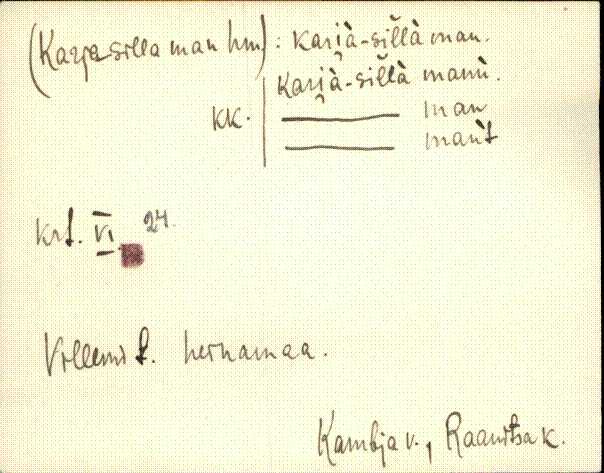 (Karja-silla man hm) : karjà-sĭllà man.
karjà-sĭllà manù.
kk. ——— man
——— mant
krt. VI 24.
Villemi t. heinamaa.
Kambja v., Raanitsa k.